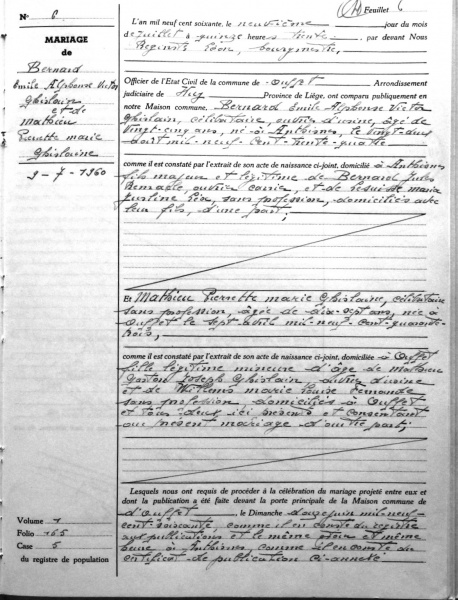 N° 6
Feuillet 6
MARIAGE
de
Bernard
Emile Alphonse Victor
Ghislain
et de
Mathieu
Pierrette Marie
Ghislaine
9-7-1960
L'an mil neuf cent soixante, le neuvième jour du mois
de juillet à quinze heures trente par devant Nous
bourgmestre,
Officier de l'Etat Civil de la commune de Ouffet Arrondissement
judiciaire de Huy Province de Liège, ont comparu publiquement en
notre Maison commune, Bernard Emile Alphonse Victor
Ghislain, célibataire, ouvrier d'usine, âgé de
vingt-cinq ans, né à Anthisnes, le vingt-deux
août mil-neuf-cent-trente-quatre
comme il est constaté par l'extrait de son acte de naissance ci-joint, domicilié à Anthisnes
fils majeur et légitime de Bernard Jules
Remacle, ouvrier carrier, et de Marie
Justine sans profession, domiciliés avec
leur fils, d'une part;
Et Mathieu Pierrette Marie Ghislaine, célibataire
sans profession, âgée de dix-sept ans, née à
Ouffet le sept avril mil-neuf-cent-quarante-
trois,
comme il est constaté par l'extrait de son acte de naissance ci-jointe, domiciliée à Ouffet
fille légitime mineure d'âge de Mathieu
Gaston Joseph Ghislain, ouvrier d'usine
et de Marie Louise Fernande
sans profession domiciliés à Ouffet
et tous deux ici présents et consentant
au présent mariage d'autre part;
Lesquels nous ont requis de procéder à la célébration du mariage projeté entre eux et
dont la publication a été faite devant la porte principale de la Maison commune de
d'Ouffet, le Dimanche douze juin mil-neuf-
cent-soixante, comme il en conste du registre
aux publications et le même jour et même
heure à Anthisnes, comme il en conste du
certificat de publication ci-annexé
Volume 1
Folio 165
Case 5
du registre de population